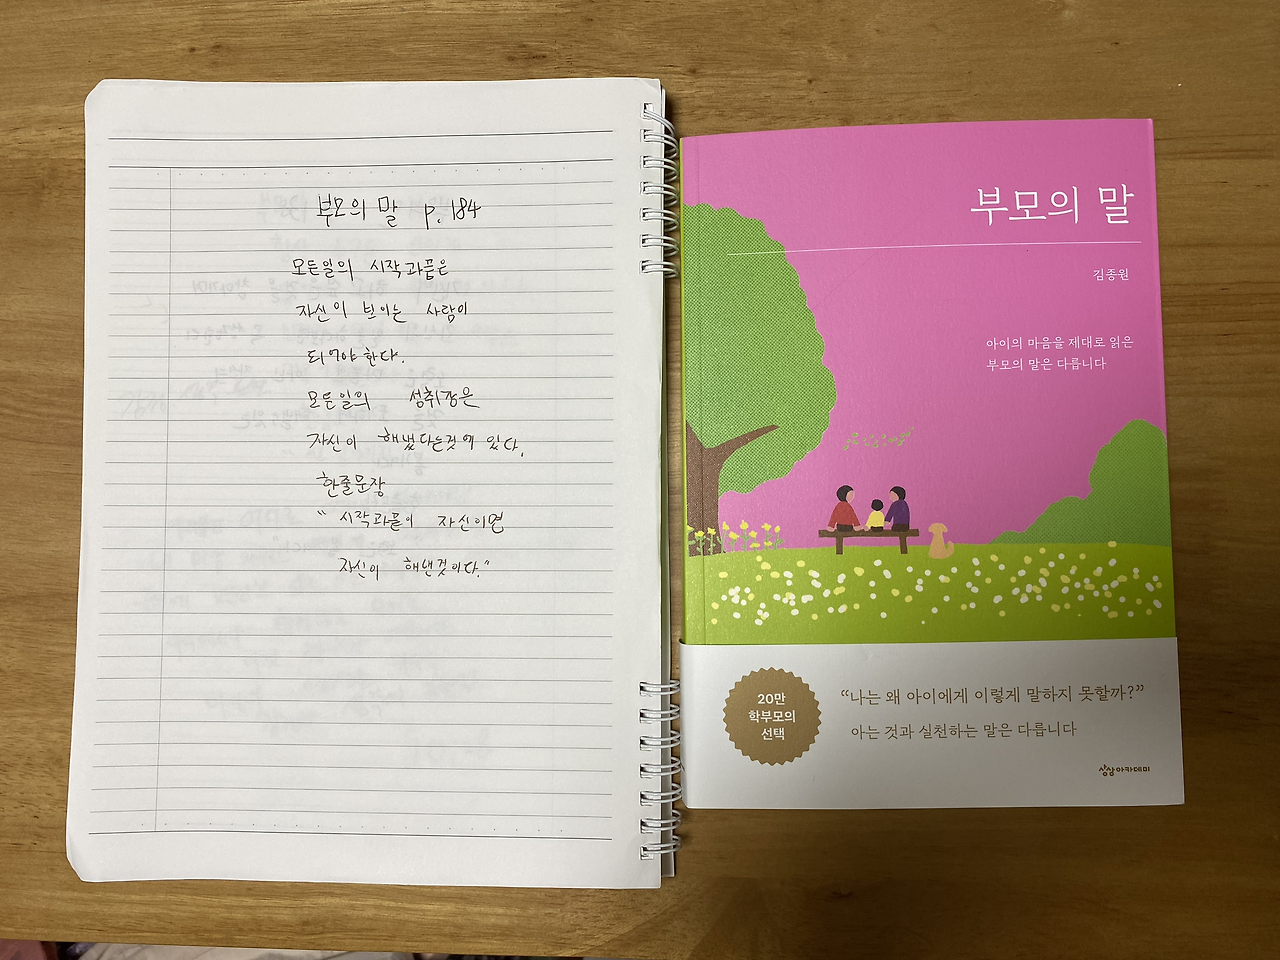 부모의 말 p. 184
모든일의 시작과끝은
자신이 보이는 사람이
되어야 한다.
모든일의 성취감은
자신이 해냈다는것에 있다.
한줄문장
“시작과끝이 자신이면
자신이 해낸것이다.”
부모의 말
김종원
아이의 마음을 제대로 읽은
부모의 말은 다릅니다
20만
학부모의
선택
“나는 왜 아이에게 이렇게 말하지 못할까?”
아는 것과 실천하는 말은 다릅니다
상상아카데미